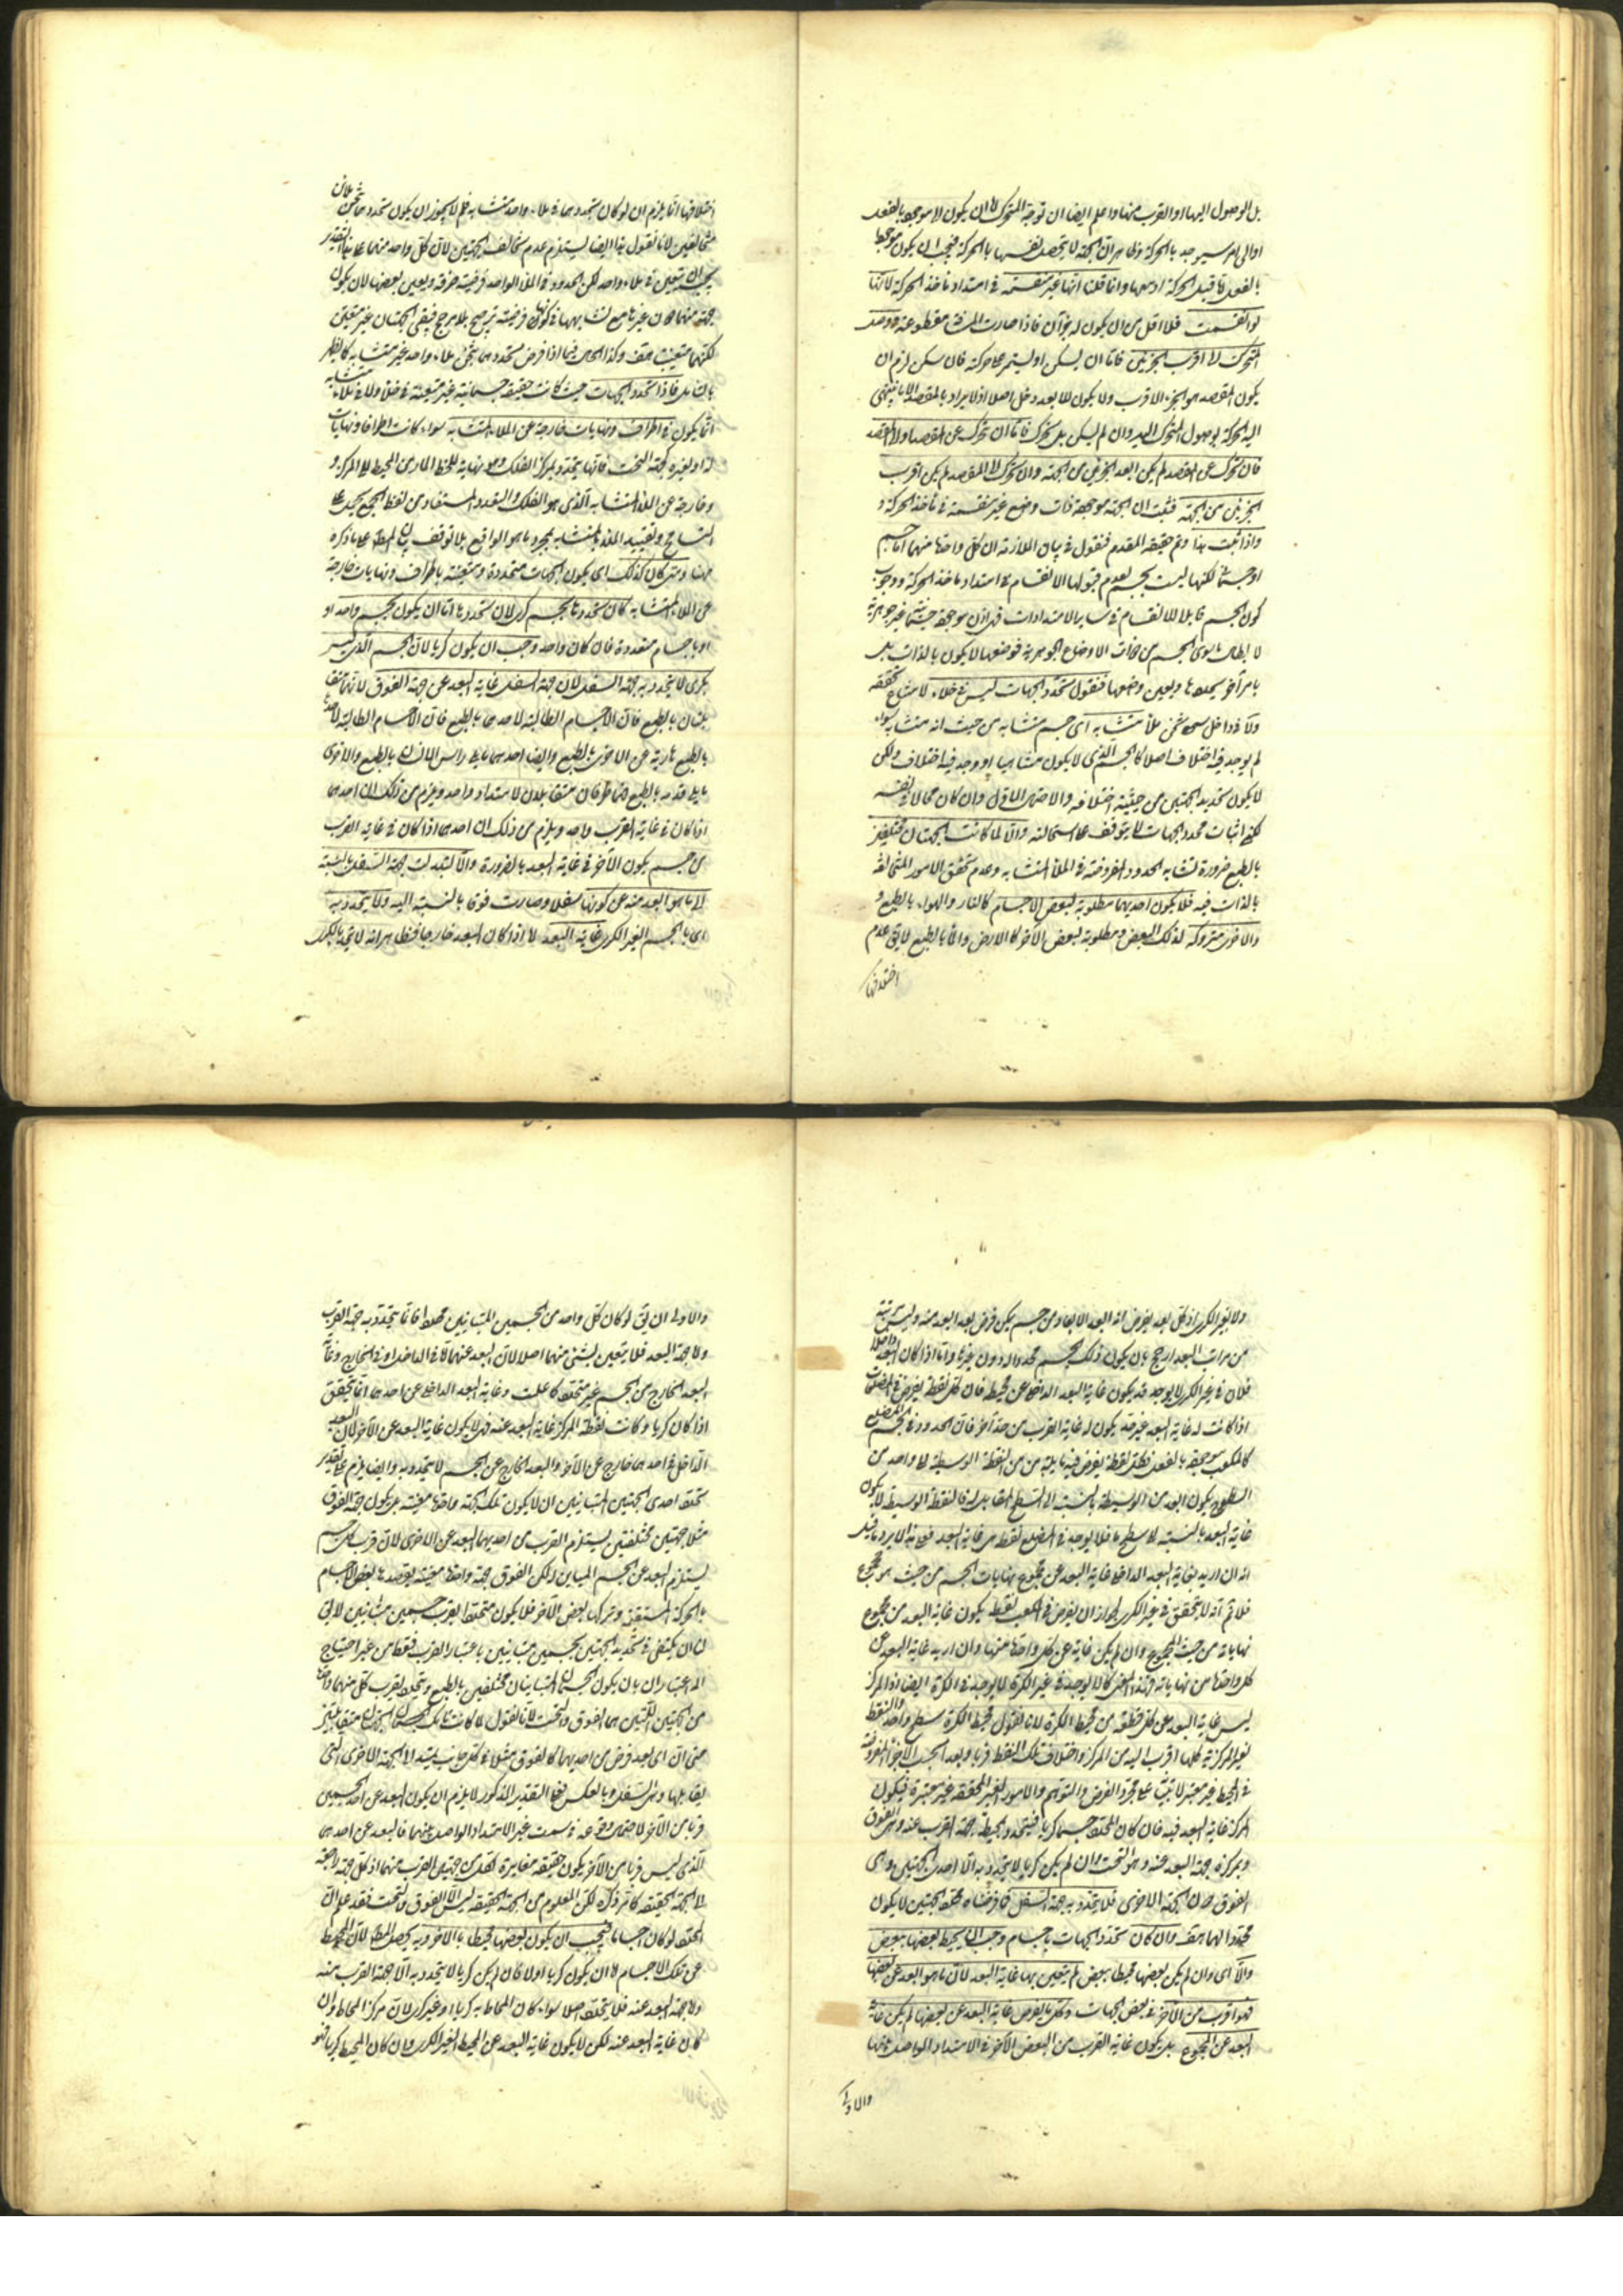 بل الوصول اليها او القرب منها واعلم ايضا ان توجه المتحرك لا ان يكون لا موجها بالفعل
او الى امر سيوجد بالحركة وظاهر ان الجهة لا تحصل نفسها بالحركة فيجب ان يكون موجها
بالفعل قبل الحركة وانما قلنا انها غير منقسمة في امتداد ماخذ الحركة لانها
لو انقسمت فلا اقل من ان يكون له جزآن فاذا صارت مقطوعة ووصل
المتحرك الى اقرب الجزئين فاما ان يسكن او يستمر على حركته فان سكن لزم ان
يكون المقصد هو الجزء الاقرب ولا يكون للابعد دخل اصلا اذ لا يراد بالمقصد الا ما ينتهي
اليه الحركة بوصول المتحرك اليه وان لم يسكن بل تحرك فاما ان تحرك عن المقصد او لا المقصد
فان تحرك عن المقصد لم يكن ابعد الجزئين من الجهة وان تحرك الى المقصد لم يكن اقرب
الجزئين من الجهة فثبت ان الجهة موجهة ذات وضع غير منقسمة في ماخذ الحركة و
واذا ثبت هذا وتم حقيقة المقدم فنقول في بيان الملازمة ان كل واحدة منهما اما جسم
او جسماني لكنها ليست بجسم لعدم قبولها الانقسام في امتداد ماخذ الحركة ووجوب
كون الجسم قابلا للانقسام في ساير الامتدادات فهي اذن موجهة جسمانية غير جوهرية
لابطال ما سوى الجسم من ذوات الاوضاع الجوهرية فوضعها لا يكون بالذات بل
بامر آخر يحددها ويعين وضعها فنقول تحدد الجهات ليس في خلاء لامتناع تحققه
ولا في داخل ثخن ملاء متشابه اى جسم متشابه من حيث انه متشابه سواء
لم يوجد فيه اختلاف اصلا كالجسم الذى لا يكون متناهيا او وجد فيه اختلاف ولكن
لا يكون تحديد الجهتين من حيثية اختلافه والاحتمال الاول وان كان محالا في نفسه
لكن اثبات محدد الجهات لا يتوقف على استحالته والا لما كانت الجهتان مختلفتين
بالطبع ضرورة تشابه الحدود المفروضة في الملاء المتشابه وعدم تحقق الامور المتخالفة
بالذات فيه فلا يكون احديهما مطلوبة لبعض الاجسام كالنار والهواء بالطبع و
والاخرى متروكة لذلك البعض ومطلوبة لبعض الآخر كالارض والماء بالطبع لا يق عدم
اختلافها
اختلافها انما يلزم ان لو كان تحددهما في ملاء واحد متشابه فلم لا يجوز ان يكون تحددهما في ثخن ملائين
متخالفين لانا نقول هذا ايضا يستلزم عدم تخالف الجهتين لان كل واحد منهما على هذا التقدير
يجب ان يتعين في ملاء واحد لكن الحدود في الملاء الواحد فرضية صرفة وتعين بعضها لان يكون
جهة منهما دون غيرها مع تشابهها في كونها فرضية ترجيح بلا مرجح فيبقى الجهتان غير متعينتين
لكنهما متعينتان هف وكذا الحال فيما اذا فرض تحددهما بثخن ملاء واحد غير متشابه كما يظهر
فاذا تحدد الجهات حيث كانت حقيقة جسمانية غير متعينة في خلاء ولا في ملاء متشابه
انما يكون في اطراف ونهايات خارجة عن الملاء المتشابه سواء كانت اطرافا ونهايات
له او لغيره كجهة التحت فانها يتحدد بمركز الفلك وهو نهاية للخط المار من المحيط الى المركز و
وخارجة عن الملاء المتشابه الذى هو الفلك والتعدد المستفاد من لفظ الجمع يحمل على
التسامح وتقييد الملاء بالمتشابه بمجرد ما هو الواقع بلا توقف بيان المطلوب على ما ذكره
ههنا ومتى كان كذلك اى يكون الجهات متحددة ومتعينة باطراف ونهايات خارجة
عن الملاء المتشابه كان تحددها بجسم كرى لان تحددها اما ان يكون بجسم واحد او
او باجسام متعددة فان كان واحد وجب ان يكون كريا لان الجسم الذى ليس
بكرى لا يتحدد به جهة السفل لان جهة السفل غاية البعد عن جهة الفوق لانهما متقا
بلتان بالطبع فان الاجسام الطالبة لاحدهما بالطبع فان الاجسام الطالبة لاحدها
بالطبع هاربة عن الاخرى بالطبع وايضا احدهما ما يلى راس الانسان بالطبع والاخرى
ما يلى قدمه بالطبع فهما طرفان متقابلان لامتداد واحد ويلزم من ذلك ان احدهما
اذا كان في غاية القرب واحد ويلزم من ذلك ان احدهما اذا كان في غاية القرب
من جسم يكون الآخر في غاية البعد بالضرورة والا لتبدلت جهة السفل بالنسبة
الى ما هو ابعد منه عن كونها سفلا وصارت فوق بالنسبة اليه ولا يتحدد به
اى بالجسم الغير الكرى غاية البعد لا اذا كان البعد خارجا فظاهر انه لا يتحد بالكرى
ولا بغير الكرى اذ كل بعد يفرض انه ابعد الابعاد من جسم يمكن فرض بعد ابعد منه وليس مرتبة
من مراتب البعد ارجح بان يكون ذلك الجسم محددا له دون غيرها واما اذا كان البعد داخلا
فلان في غير الكرى لا يوجد قد يكون غاية البعد الداخل عن محيطه فان كل نقطة يفرض في المضلعات
اذا كانت له غاية البعد عن حد يكون له غاية القرب من حد آخر فان الحدود في الجسم المضلع
كالمكعب موجهة بالفعل فكل نقطة يفرض فيه مايلة من من النقطة الوسطية الى واحد من
السطوح يكون ابعد من الوسيطة بالنسبة الى السطح المقابل له فالنقطة الوسيطة لا يكون
غاية البعد بالنسبة الى سطح ما فلا يوجد في المضلع نقطة هى غاية البعد فيه الا يرد ما قيل
انه ان اريد بغاية البعد الداخل غاية البعد عن مجموع نهايات الجسم من حيث هو مجموع
فلا نم انه لا يتحقق في غير الكرى لجواز ان يفرض في المكعب نقطة يكون غاية البعد من مجموع
نهاياته من حيث المجموع وان لم يكن غاية عن كل واحدة منها وان اريد غاية البعد عن
كل واحدة من نهاياته فهذا المعنى كما لا يوجد في غير الكرة لا يوجد في الكرة ايضا اذ المركز
ليس غاية البعد عن كل نقطة من محيط الكرة لانا نقول محيط الكرة سطح واحد والنقط
لغير المركزية كلها اقرب اليه من المركز واختلاف تلك النقط قربا وبعدا بحسب الاجزاء المفروضة
في المحيط غير معتبر لابتنائه على مجرد الفرض والتوهم والامور الغير المحققة غير معتبرة فيكون
المركز غاية البعد فيه فان كان المحدد جسما كريا فيتحدد بمحيطه جهة القرب عنه وهى الفوق
وبمركزه جهة البعد عنه وهو التحت وان لم يكن كريا لا يتحدد به الا احدى الجهتين وهى
الفوق دون الجهة الاخرى فلا يتحدد به جهة السفل فما فرضناه محدد الجهتين لا يكون
محددا لهما هف وان كان تحدد الجهات باجسام وجب ان يحيط بعضها ببعض
والا اى وان لم يكن بعضها محيطا ببعض لم يتعين بها غاية البعد لان ما هو ابعد عن بعضها
فهو اقرب من الآخر في بعض الجهات وكل ما يفرض غاية البعد عن بعضها لم يكن غاية
البعد عن المجموع بل يكون غاية القرب من البعض الآخر في الامتداد الواصل بينها
والاولى
والاولى ان يق لو كان كل واحد من الجسمين المتباينين محددا فانما يتحدد به جهة القرب
ولا جهة البعد فلا يتعين بشئ منهما اصلا لان البعد عنهما اما في الداخل او في الخارج وغاية
البعد الخارج من الجسم غير متحددة كما علمت وغاية البعد الداخل عن احدهما انما يتحقق
اذا كان كريا وكانت نقطة المركز غاية البعد عنه فهى لا يكون غاية البعد عن الآخر لان البعد
الداخل في احدهما خارج عن الآخر والبعد الخارج عن الجسم لا يتحدد به وايضا يلزم على تقدير
تحدد احدى الجهتين المتباينتين ان لا يكون تلك الجهة واحدة معينة بل يكون جهة الفوق
مثلا جهتين مختلفتين يستلزم القرب من احديهما البعد عن الاخرى لان قرب كل جسم
يستلزم البعد عن الجسم المباين له لكن الفوق جهة واحدة معينة يقصدها بعض الاجسام
بالحركة المستقيمة ويتركها بعض الآخر فلا يكون متحددا بقرب جسمين متباينين لا يق
لنا ان يكتفى في تحديد الجهتين بجسمين متباينين باعتبار القرب فقط من غير احتياج
الى اعتبار ان بان يكون الجسمان المتباينان مختلفين بالطبع ويتحدد بقرب كل منهما واحدة
من الجهتين اللتين هما الفوق والتحت لانا نقول لما كانت تلك الجهتان متقابلتين
حتى ان اى بعد فرض من احديهما كالفوق مثلا في كل جانب ينتهى الى الجهة الاخرى التى
يقابلها وهى السفل وبالعكس فعلى التقدير المذكور لا يلزم ان يكون البعد عن احد الجسمين
قربا من الآخر لاحتمال وقوعه في سمت غير الامتداد الواصل بينهما فالبعد عن احدهما
الذى ليس قربا من الآخر يكون حقيقة مغايرة لكل من جهتى القرب منهما اذ كل جهة راجعة
الى الجهة الحقيقية كما مر ذكره لكن المعلوم من الجهة الحقيقية ليس الا الفوق والتحت فقد علم ان
المحدد لو كان اجساما فيجب ان يكون بعضها محيطا بالآخر وبه يحصل المطلوب لان المحيط
عن تلك الاجسام لا ان يكون كريا او لا فان لم يكن كريا لا يتحدد به الا جهة القرب منه
ولا جهة البعد عنه فلا يتحدد اصلا سواء كان المحاط به كريا او غير كرى لان مركز المحاط وان
كان غاية البعد عنه لكن لا يكون غاية البعد عن المحيط الغير الكرى وان كان المحيط كريا فهو